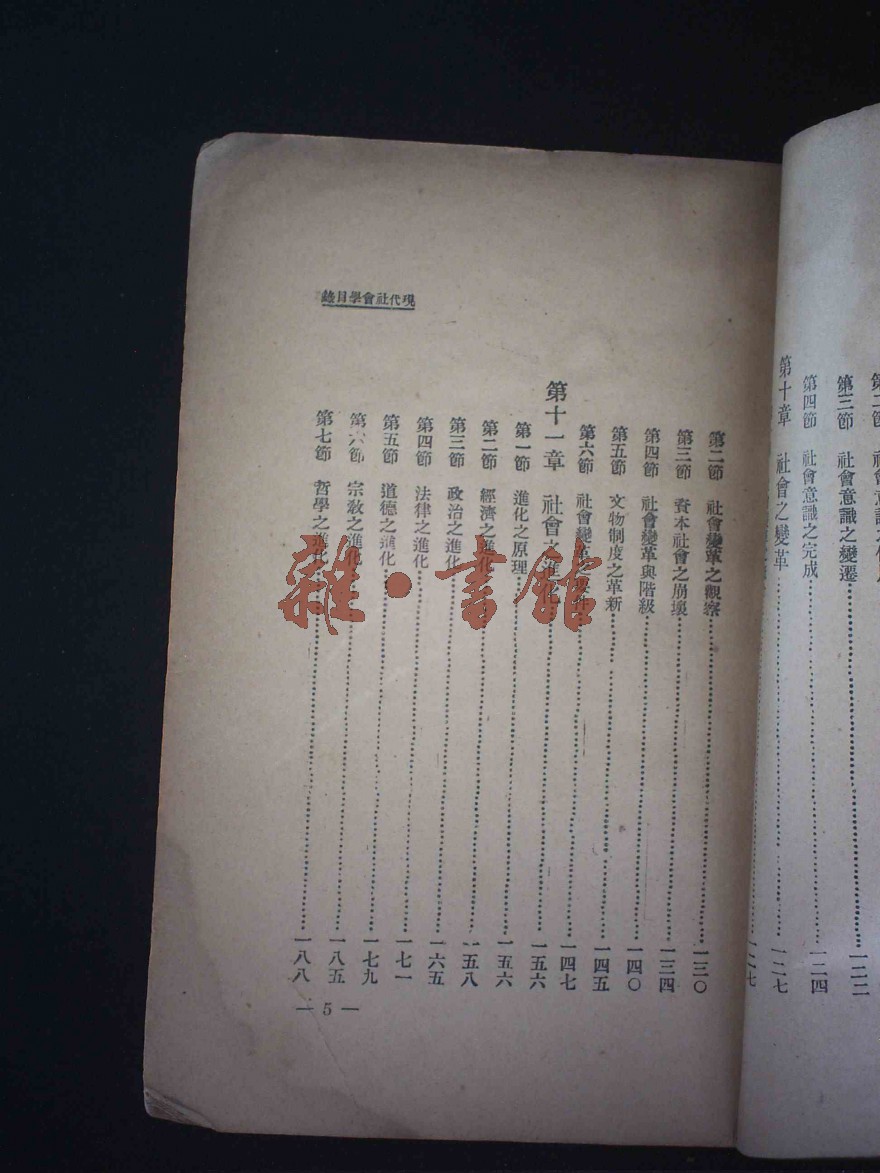 第三節　社會意識之變遷……一二二
第四節　社會意識之完成……一二四
第十章　社會之變革……一二七
一二七
現代社會學目錄
第二節　社會變革之觀察……一三〇
第三節　資本社會之崩壞……一三四
第四節　社會變革與階級……一四〇
第五節　文物制度之革新……一四五
第六節　社會變革之要件……一四七
第十一章　社會之進化……一五六
第一節　進化之原理……一五六
第二節　經濟之進化……一五八
第三節　政治之進化……一六五
第四節　法律之進化……一七一
第五節　道德之進化……一七九
第六節　宗教之進化……一八五
第七節　哲學之進化……一八八
— 5 —
雜·書館